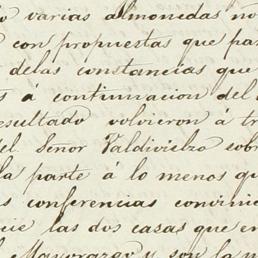 varias almonedas no
con propuestas que par
delas constancias que
á continuacion del
resultado volvieron á tr
el Señor Valdivielso sobr
la parte á lo menos qu
conferencias convinie
las dos casas que en
Mayorazgo y son la